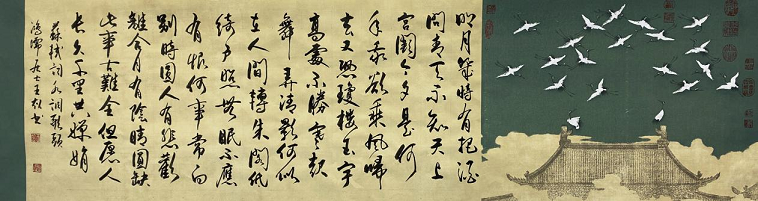 明月幾時有把酒
問青天不知天上
宮闕今夕是何
年我欲乘風歸
去又恐瓊樓玉宇
高處不勝寒起
舞弄清影何似
在人間轉朱閣低
綺戶照無眠不應
有恨何事常向
別時圓人有悲歡
離合月有陰晴圓缺
此事古難全但愿人
長久千里共嬋娟
蘇軾詞水調歌頭